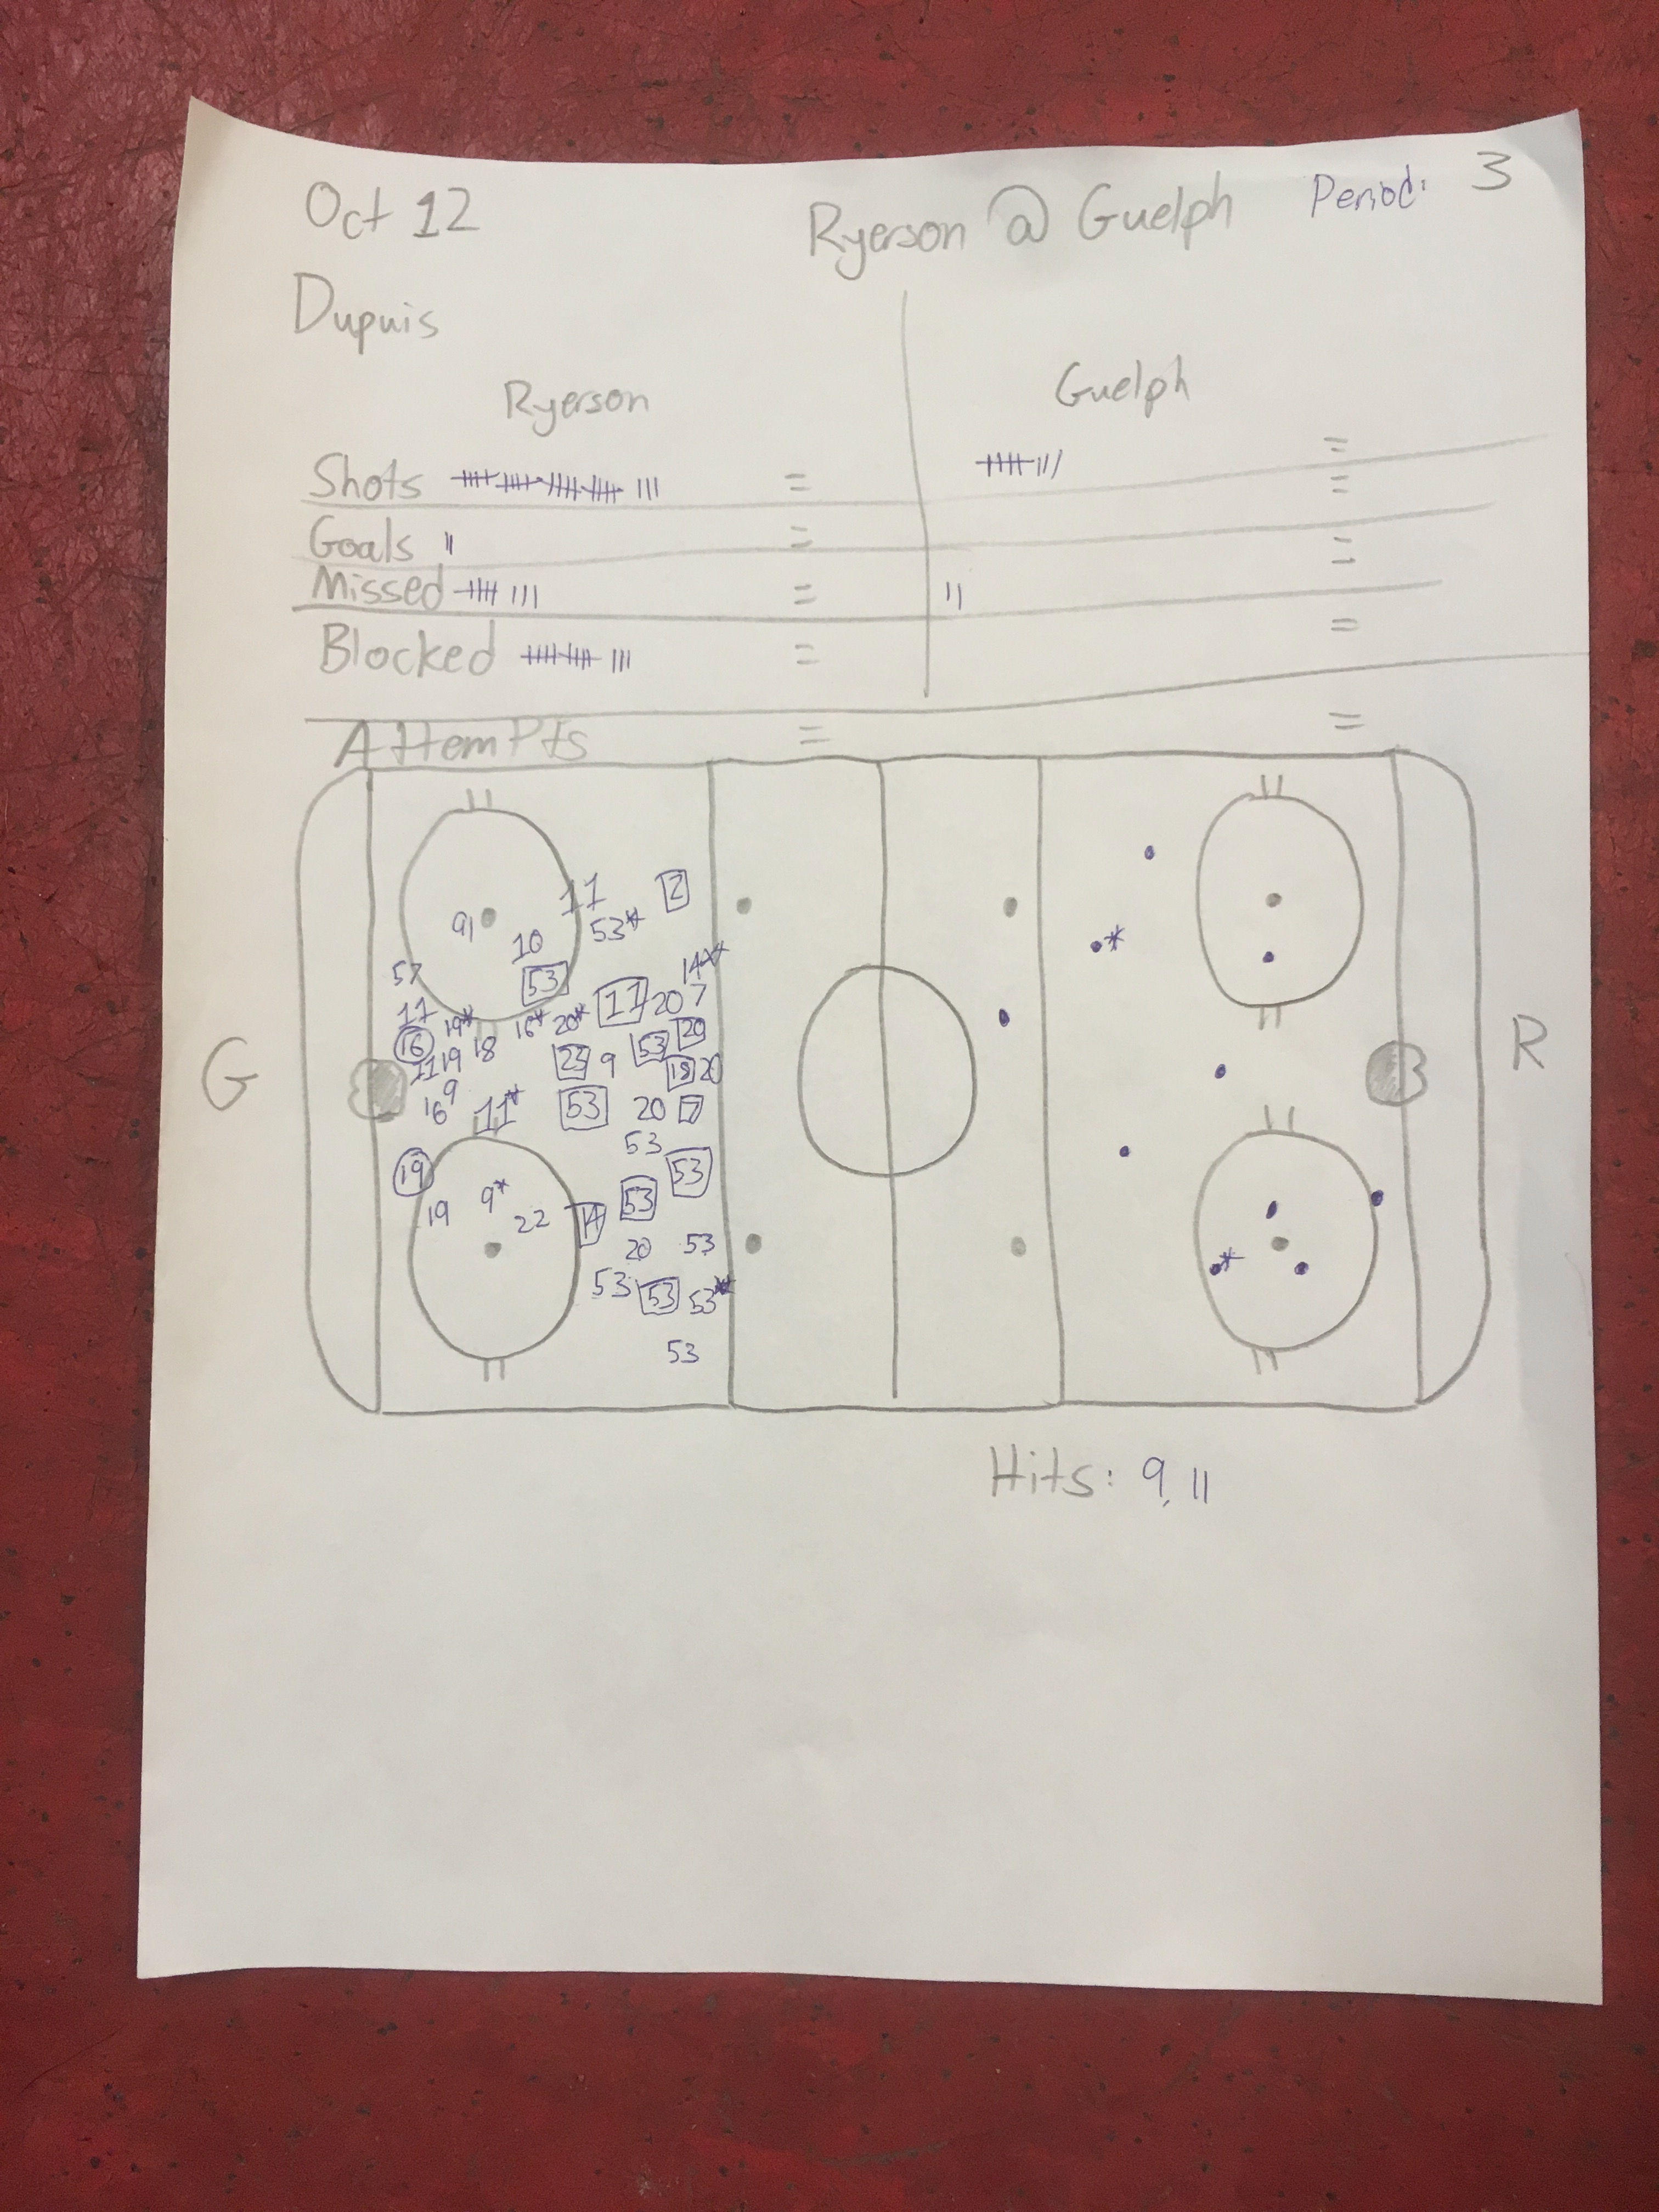 Oct 12
Ryerson @ Guelph
Period: 3
Dupuis
Ryerson
Guelph
Shots = =
=
Goals = =
Missed = =
Blocked = =
Attempts = =
11 2
91 53*
10
57 53 14*
17 11 20 7
19* 16* 20*
16 18 53 20
11 19 23 9 18 20
16 9 11* 53 20 7
53
19 53
19 9* 22 14 53
20 53
53 53 53*
53
G
R
Hits: 9, 11